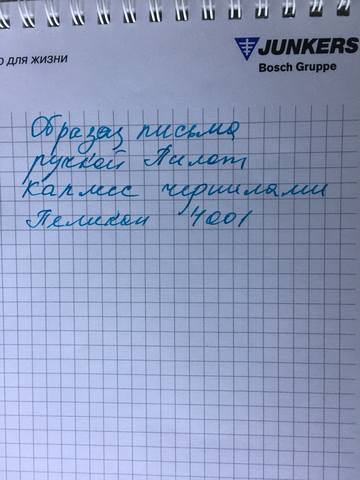 о для жизни
JUNKERS
Bosch Gruppe
Образец письма
ручкой Пилот
Каплесс чернилами
Пеликан 4001